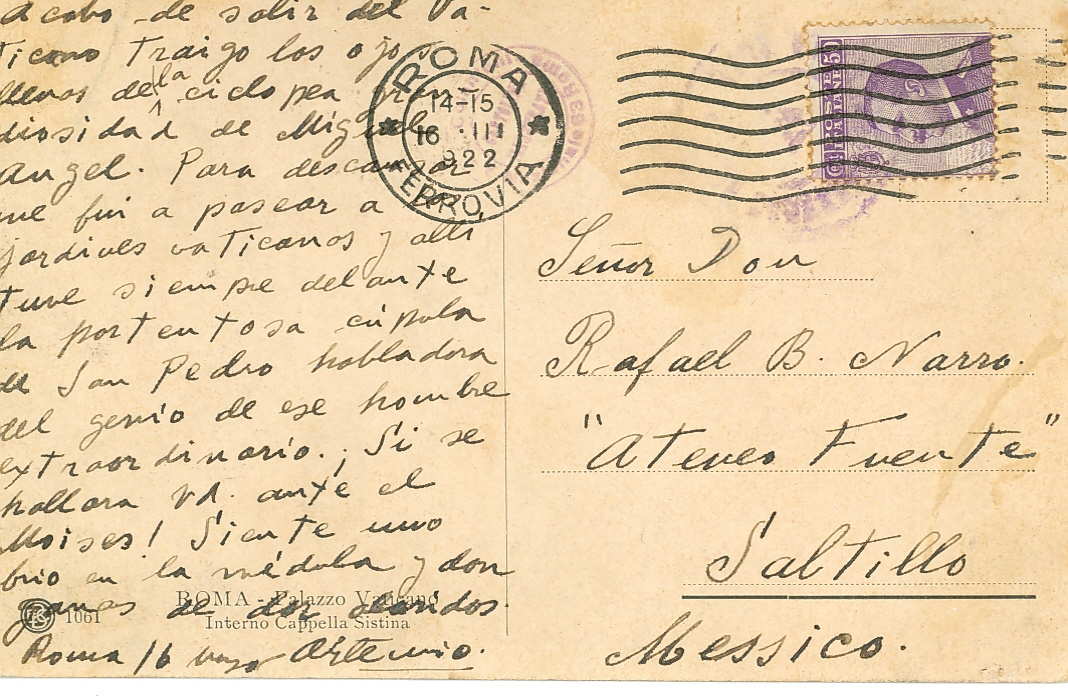 Acabo de salir del Va-
ticano Traigo los ojos
llenos de la ciclopea gran
diosidad de Miguel
Angel. Para descansar
me fui a pasear a
jardines vaticanos y alli
tuve siempre delante
la portentosa cúpula
de San Pedro habladora
del genio de ese hombre
extraordinario. ¡Si se
hallara Vd. ante el
Moises! Siente uno
brio en la médula y dan
ganas de dar alaridos.
Roma 16 Artemio.
ROMA - Palazzo Vaticano
Interno Cappella Sistina
1061
ROMA
14-15
16 III
922
FERROVIA
Señor Don
Rafael B. Narro.
"Ateneo Fuente"
Saltillo
Messico.